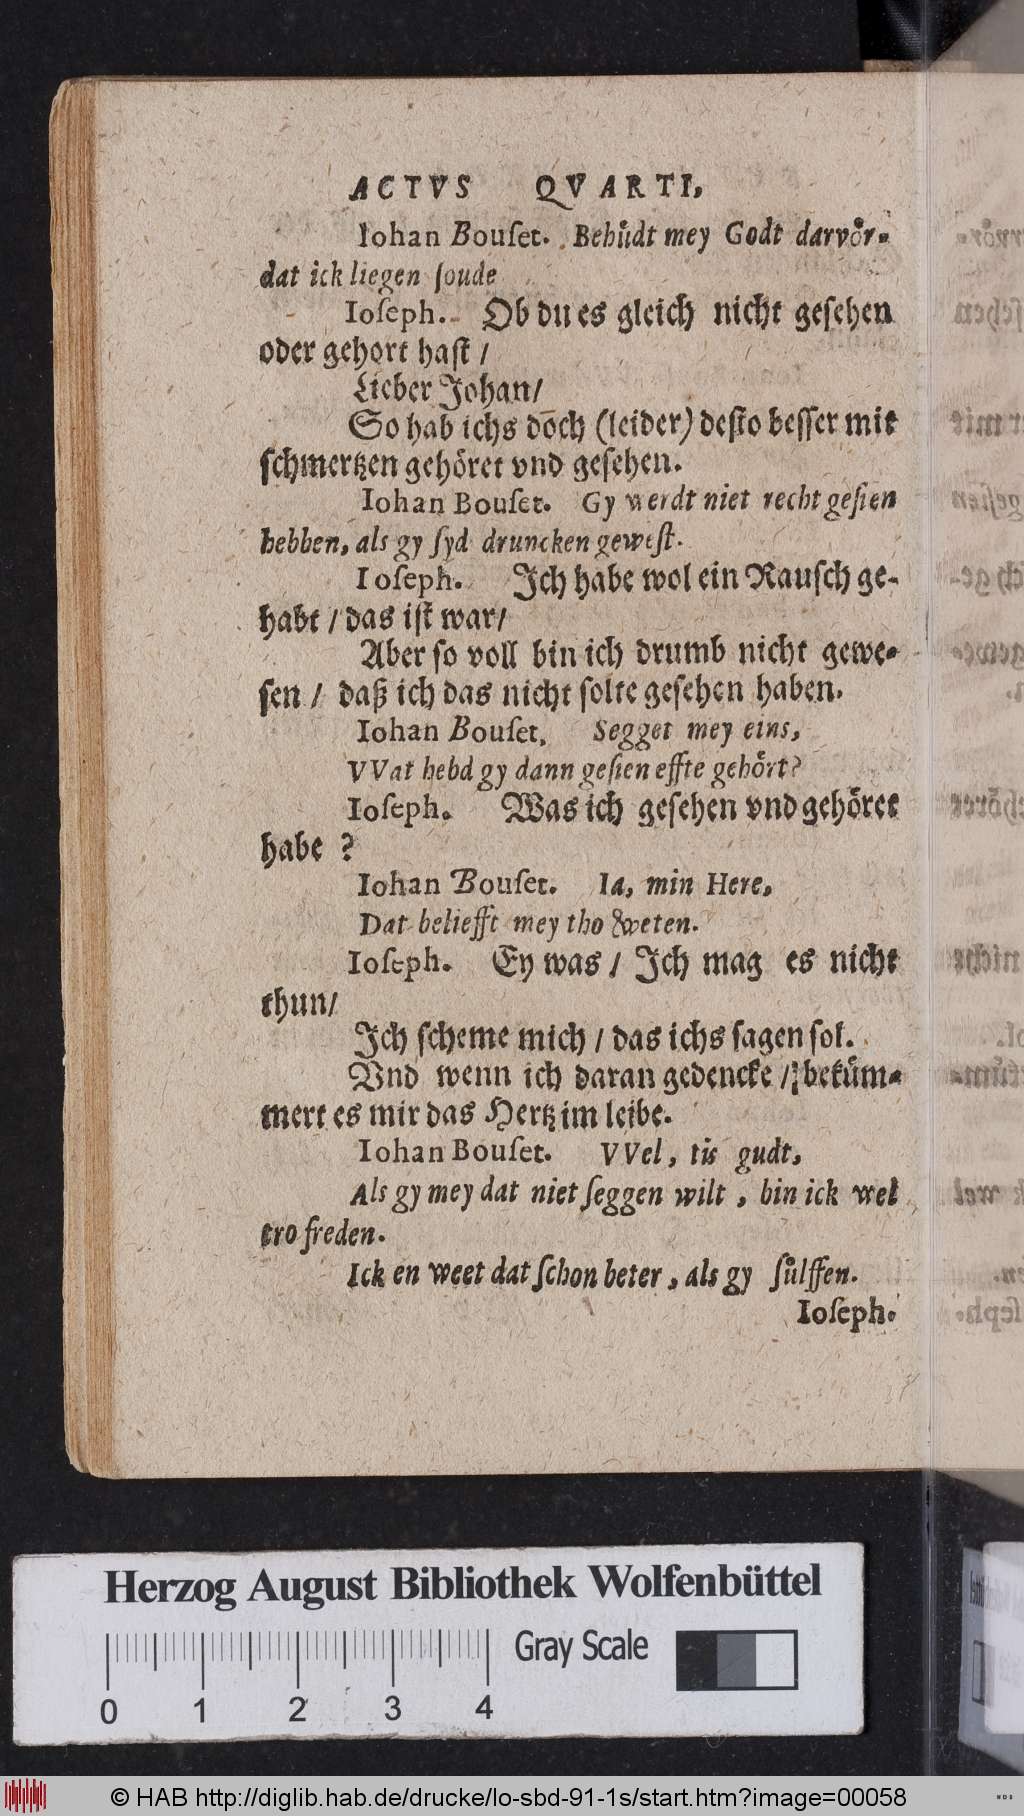 ACTVS QVARTI,
Iohan Bouſet. Behuͤdt mey Godt darvoͤr-
dat ick liegen ſoude
Ioſeph. Ob du es gleich nicht geſehen
oder gehort haſt /
Lieber Johan/
So hab ichs doch (leider) deſto beſſer mit
ſchmertzen gehoͤret vnd geſehen.
Iohan Bouſet. Gy werdt niet recht geſien
hebben, als gy ſyd druncken geweſt.
Ioſeph. Ich habe wol ein Rauſch ge-
habt / das iſt war/
Aber ſo voll bin ich drumb nicht gewe-
ſen / daß ich das nicht ſolte geſehen haben.
Iohan Bouſet. Segget mey eins,
VVat hebd gy dann geſien effte gehoͤrt?
Ioſeph. Was ich geſehen vnd gehoͤret
habe ?
Iohan Bouſet. Ia, min Here,
Dat beliefft mey tho weten.
Ioſeph. Ey was / Ich mag es nicht
thun/
Ich ſcheme mich / das ichs ſagen ſol.
Vnd wenn ich daran gedencke / bekuͤm-
mert es mir das Hertz im leibe.
Iohan Bouſet. VVel, tis gudt,
Als gy mey dat niet ſeggen wilt, bin ick wel
tro freden.
Ick en weet dat ſchon beter, als gy ſuͤlffen.
Ioſeph.
Herzog August Bibliothek Wolfenbüttel
Gray Scale
0 1 2 3 4
© HAB http://diglib.hab.de/drucke/lo-sbd-91-1s/start.htm?image=00058